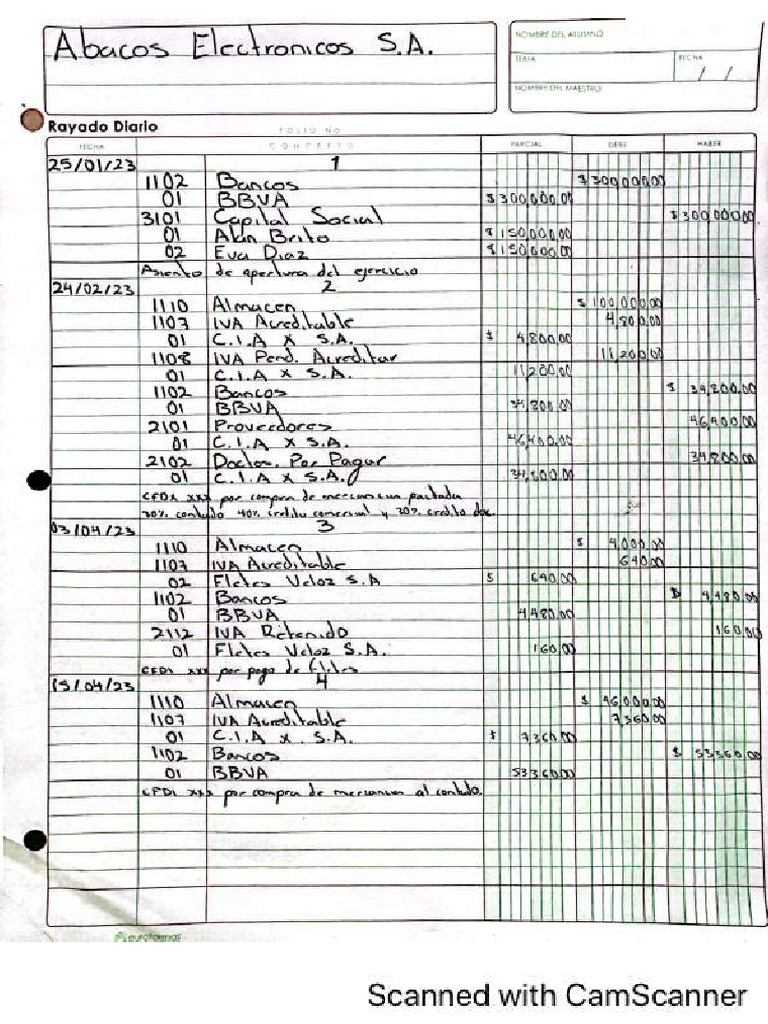 Abacos Electronicos S.A.
NOMBRE DEL ALUMNO
TEMA
FECHA
/ /
NOMBRE DEL MAESTRO
Rayado Diario
FOLIO NO
FECHA CONCEPTO PARCIAL DEBE HABER
25/01/23 1
1102 Bancos $300,000.00
01 BBVA $300,000.00
3101 Capital Social $300,000.00
01 Alan Brito $150,000.00
02 Eva Diaz $150,000.00
Asiento de apertura del ejercicio
24/02/23 2
1110 Almacen $100,000.00
1103 IVA Acreditable 4,800.00
01 C.I.A X S.A. $ 4,800.00
1108 IVA Pend. Acreditar 11,200.00
01 C.I.A X S.A. 11,200.00
1102 Bancos $ 34,800.00
01 BBVA 34,800.00
2101 Proveedores 46,400.00
01 C.I.A X S.A. 46,400.00
2102 Doctos. Por Pagar 34,800.00
01 C.I.A X S.A. 34,800.00
CFDI xxx por compra de mercancia pactada
30% contado 40% credito comercial y 30% credito doc.
03/04/23 3
1110 Almacen $ 4,000.00
1107 IVA Acreditable 640.00
02 Fletes Veloz S.A $ 640.00
1102 Bancos $ 4,480.00
01 BBVA 4,480.00
2112 IVA Retenido 160.00
01 Fletes Veloz S.A. 160.00
CFDI xxx por pago de fletes
15/04/23 4
1110 Almacen $ 46,000.00
1107 IVA Acreditable 7360.00
01 C.I.A X. S.A. $ 7360.00
1102 Bancos $ 53360.00
01 BBVA 53360.00
CFDI xxx por compra de mercancia al contado.
Scanned with CamScanner